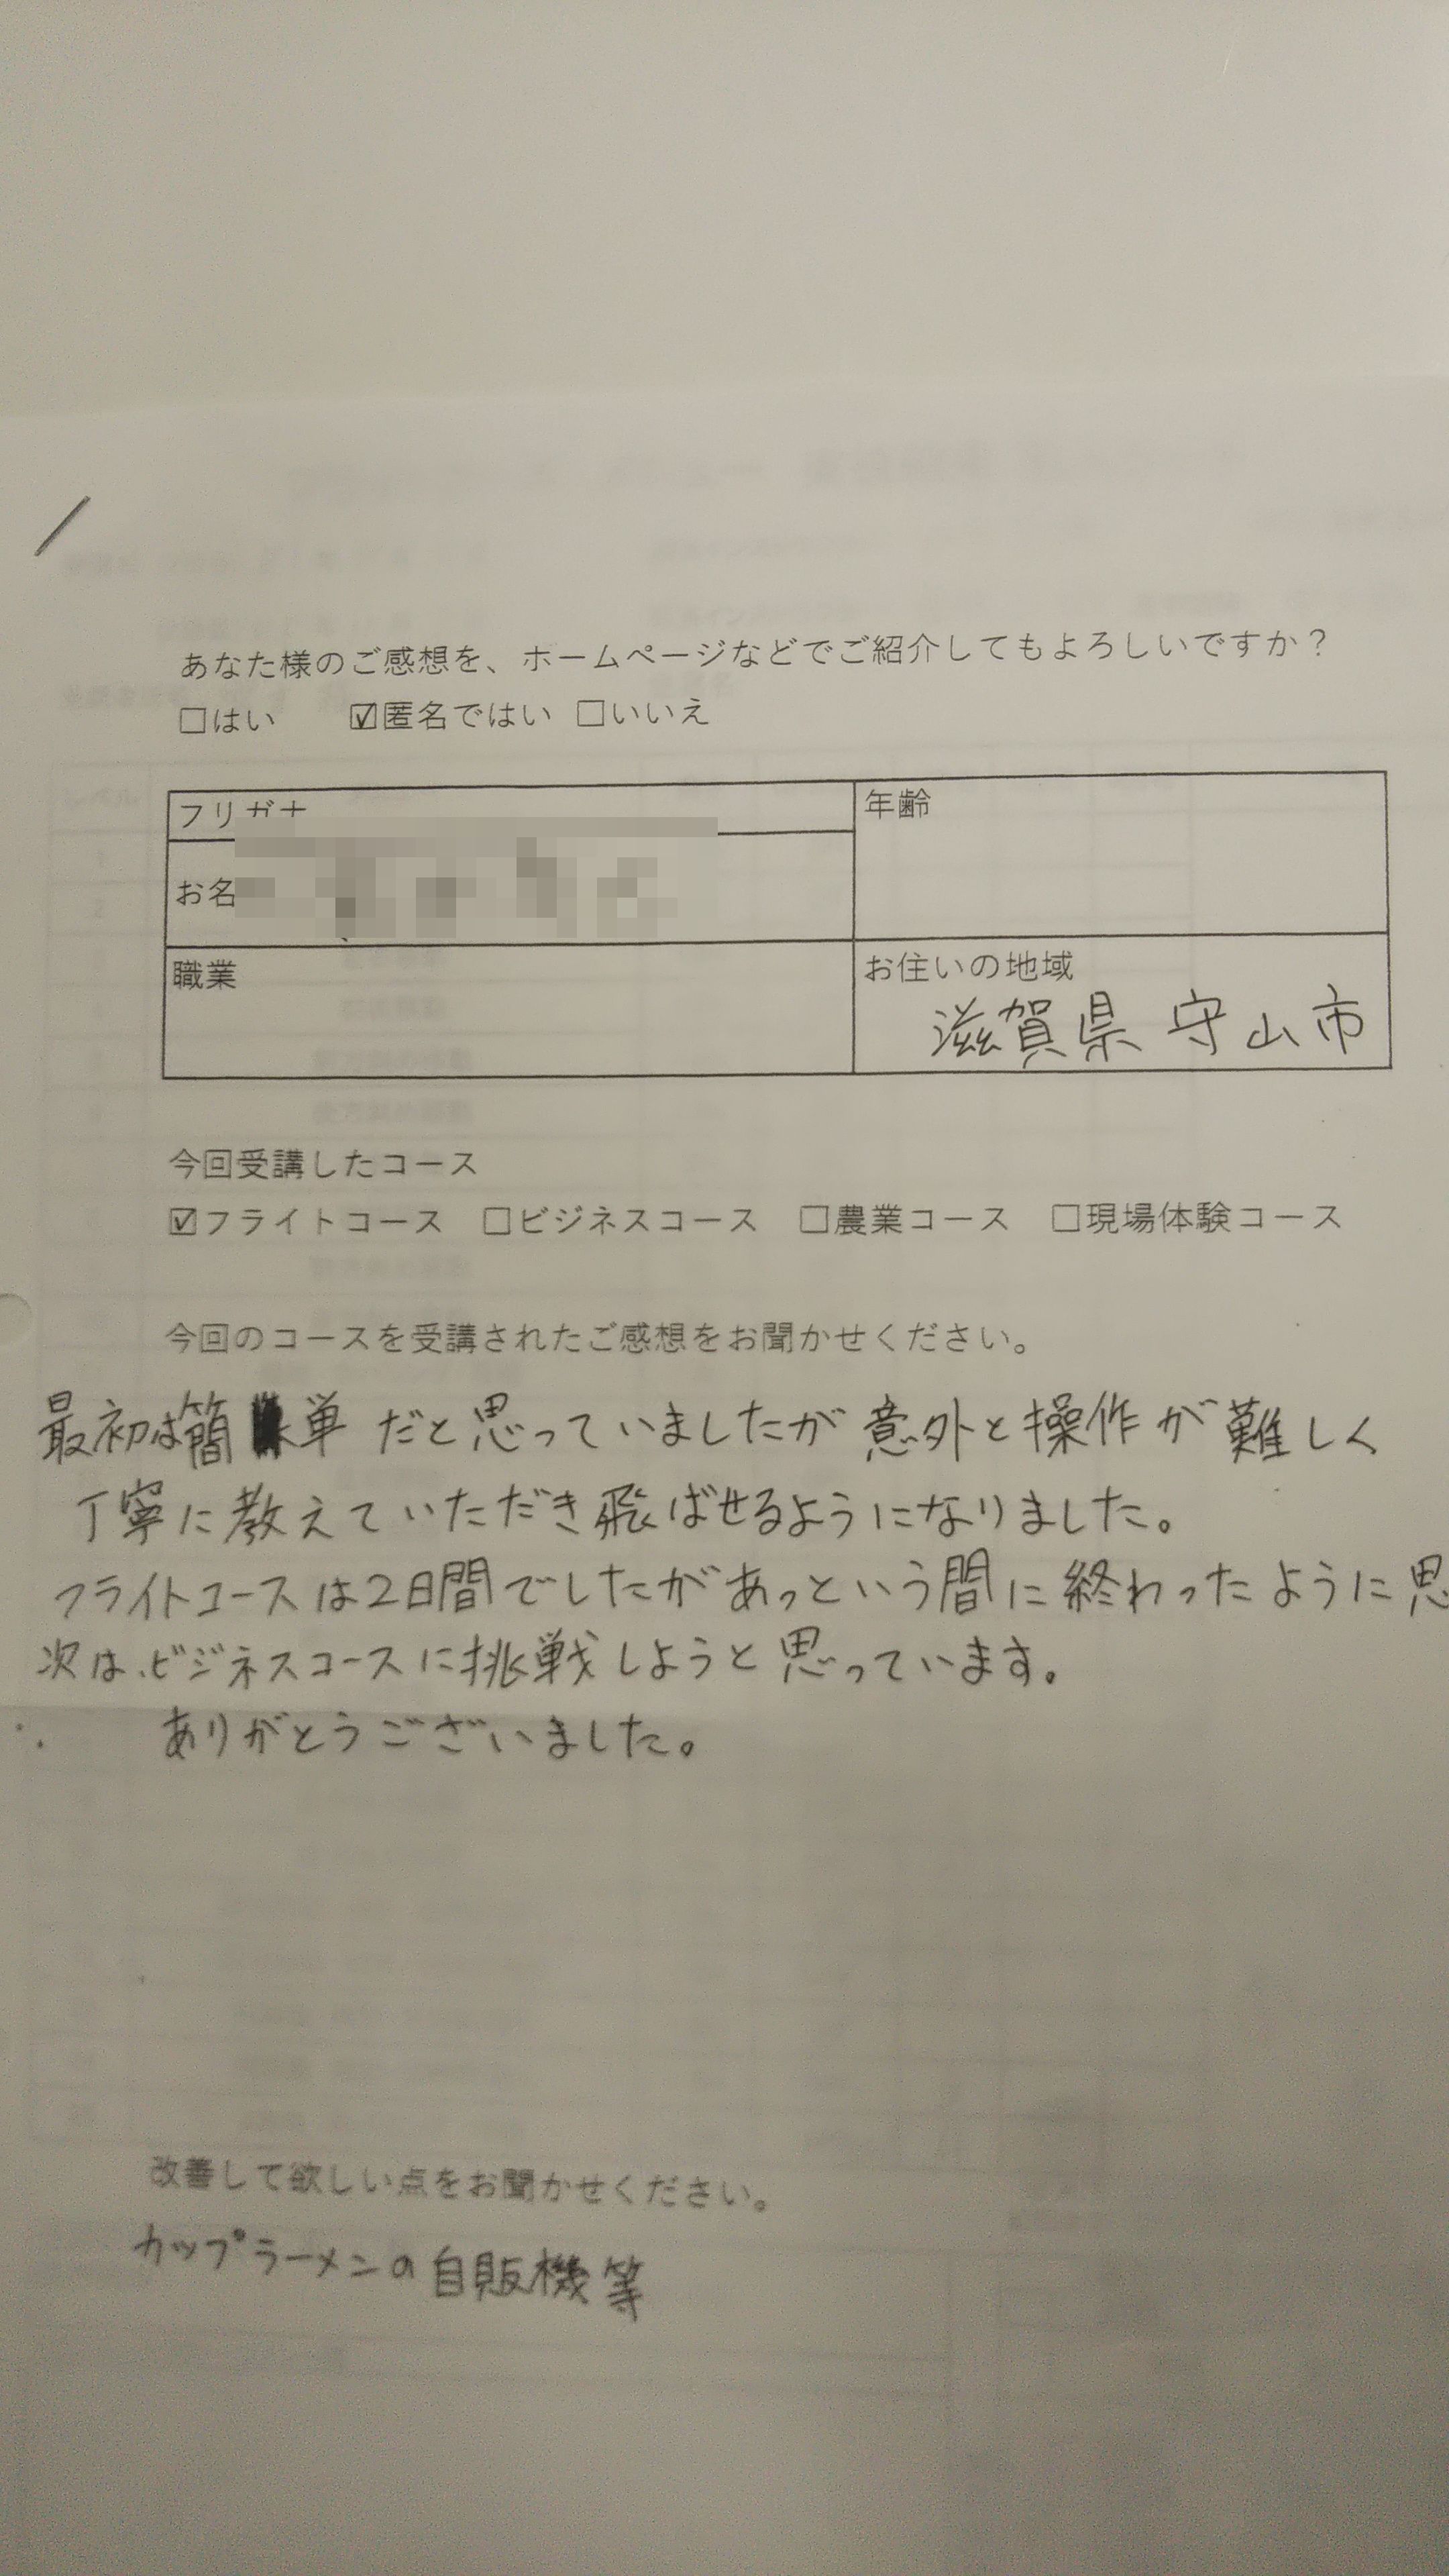 あなた様のご感想を、ホームページなどでご紹介してもよろしいですか？
□はい ☑匿名ではい □いいえ
フリガナ
年齢
お名
職業
お住いの地域
滋賀県 守山市
今回受講したコース
☑フライトコース □ビジネスコース □農業コース □現場体験コース
今回のコースを受講されたご感想をお聞かせください。
最初は簡単だと思っていましたが意外と操作が難しく
丁寧に教えていただき飛ばせるようになりました。
フライトコースは2日間でしたがあっという間に終わったように思
次は、ビジネスコースに挑戦しようと思っています。
ありがとうございました。
改善して欲しい点をお聞かせください。
カップラーメンの自販機等